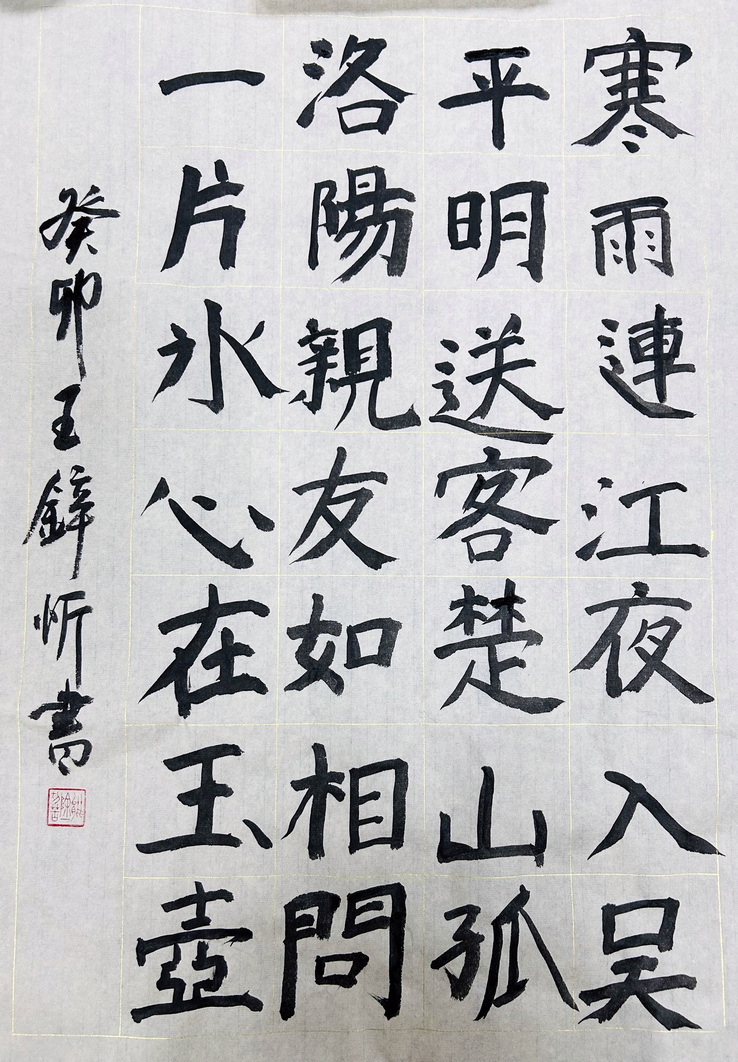 寒雨連江夜入吴
平明送客楚山孤
洛陽親友如相問
一片氷心在玉壺
癸卯王鋅忻書